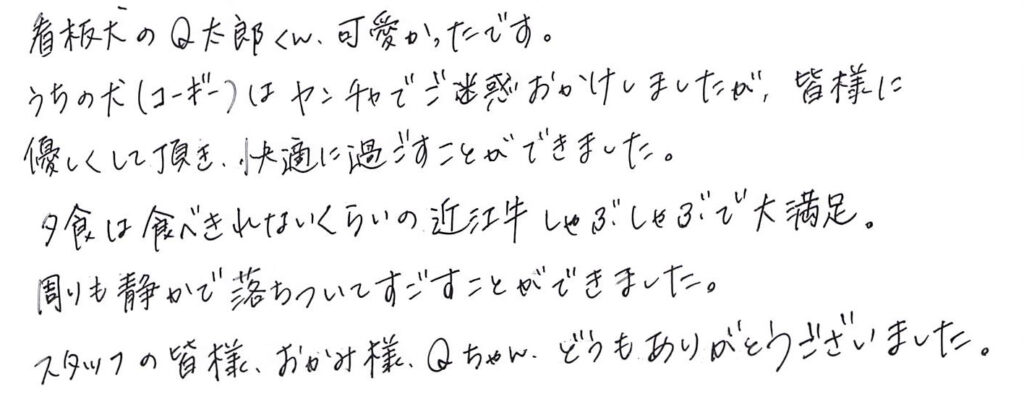 看板犬のQ太郎くん、可愛かったです。
うちの犬(コーギー)はヤンチャでご迷惑おかけしましたが、皆様に
優しくして頂き、快適に過ごすことができました。
夕食は食べきれないくらいの近江牛しゃぶしゃぶで大満足。
周りも静かで落ちついてすごすことができました。
スタッフの皆様、おかみ様、Qちゃん、どうもありがとうございました。